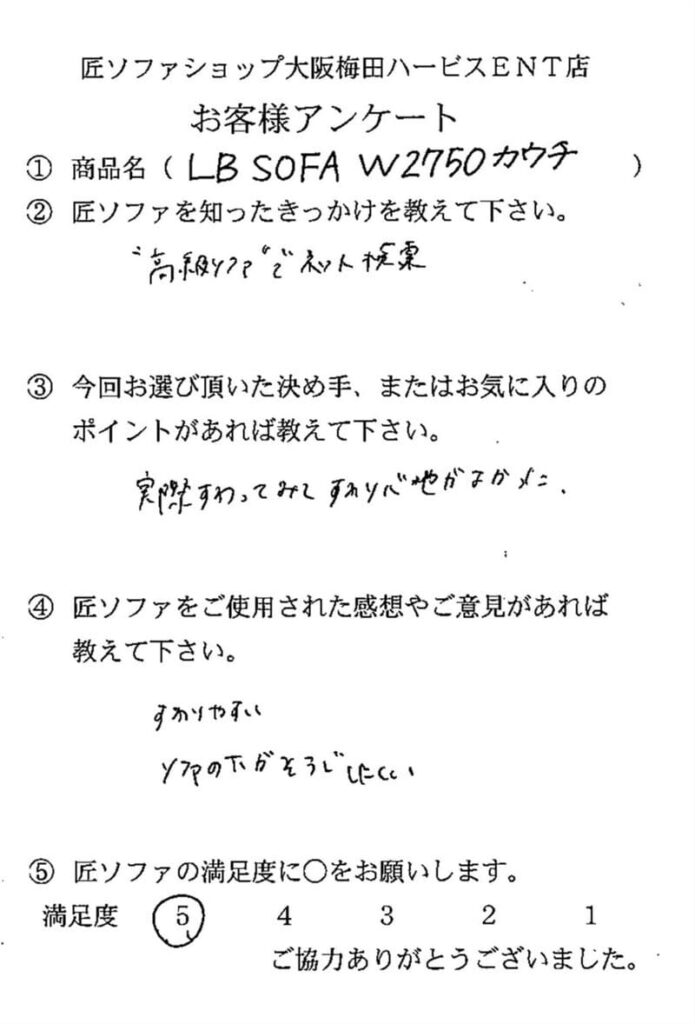 匠ソファショップ大阪梅田ハービスENT店
お客様アンケート
① 商品名（ LB SOFA W2750カウチ ）
② 匠ソファを知ったきっかけを教えて下さい。
"高級ソファ"で ネット検索
③ 今回お選び頂いた決め手、またはお気に入りの
ポイントがあれば教えて下さい。
実際すわってみて すわり心地がよかった.
④ 匠ソファをご使用された感想やご意見があれば
教えて下さい。
すわりやすい
ソファの下がそうじしにくい
⑤ 匠ソファの満足度に○をお願いします。
満足度 5 4 3 2 1
ご協力ありがとうございました。